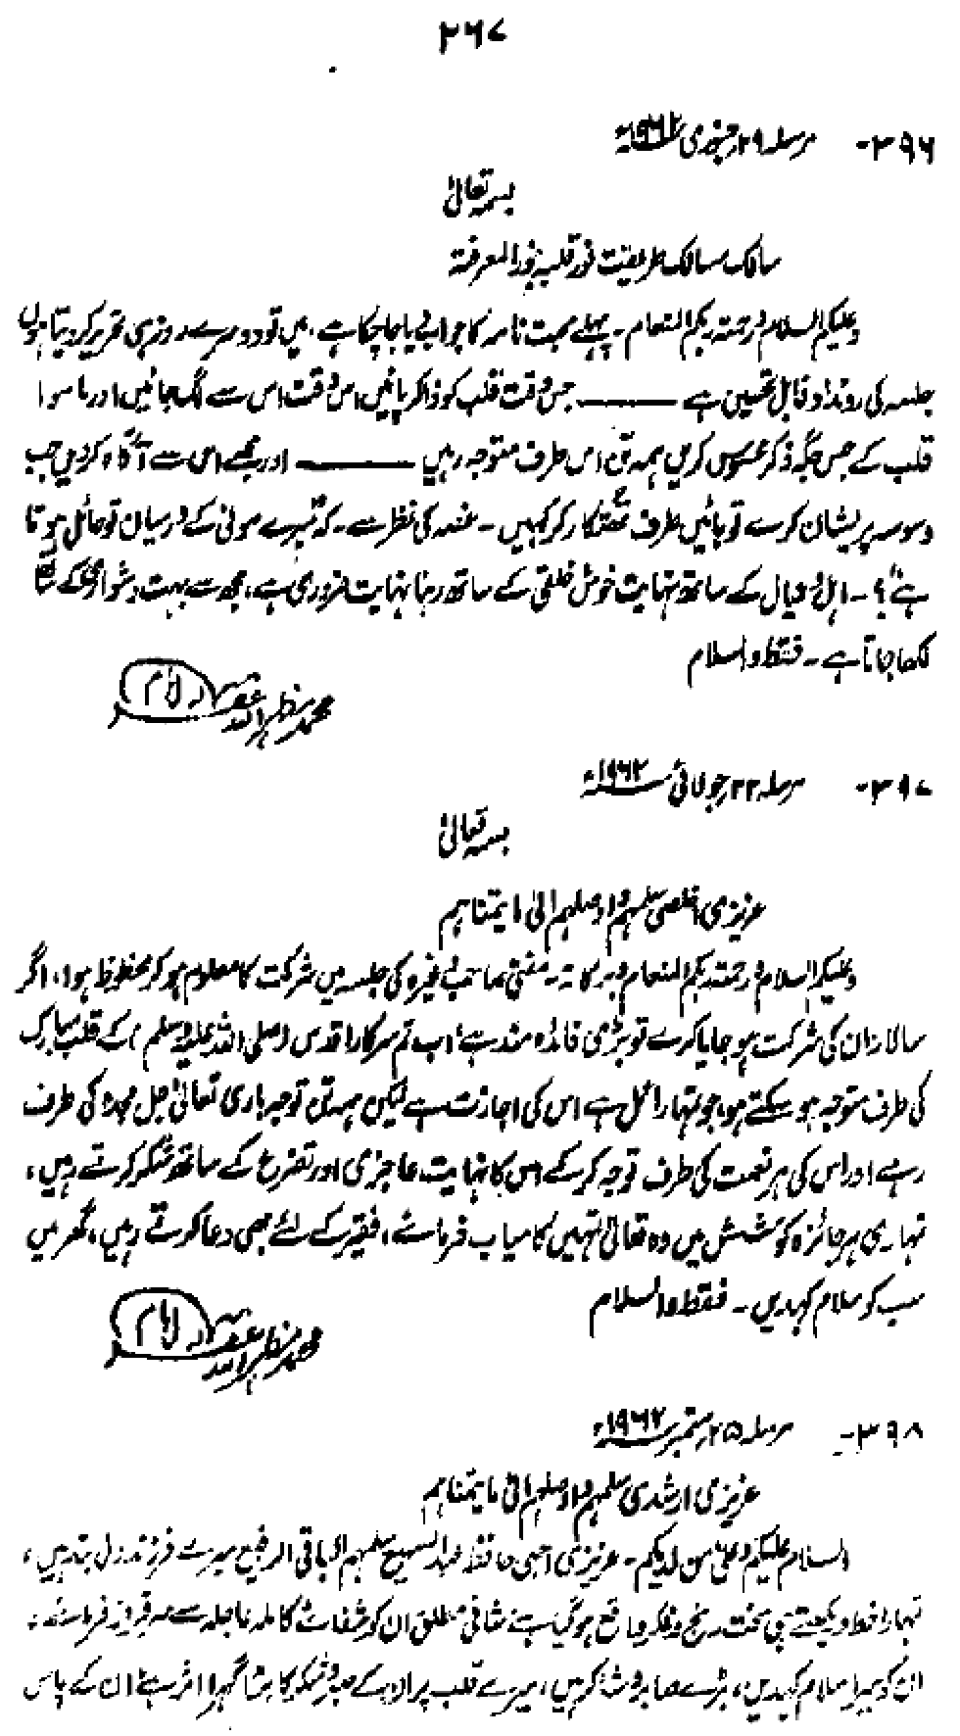 ۲۶۷
۳۹۶- مرسلہ ۲۹ر جنوری ۱۹۶۲ء
بسمہ تعالیٰ
سالک مسالک طریقت نور قلبہ بنور المعرفۃ
وعلیکم السلام ورحمتہ ربکم المنعام۔ پہلے محبت نامہ کا جواب دیا جا چکا ہے، میں تو دوسرے روز ہی تحریر کر دیتا ہوں
جلسہ کی روئداد قابل تحسین ہے ——— جس وقت قلب کو ذاکر پائیں اس وقت اس سے لگ جائیں اور ماسوا
قلب کے جس جگہ ذکر محسوس کریں ہمہ تن اس طرف متوجہ رہیں ——— اور مجھے اس سے آگاہ کر دیں جب
وسوسہ پریشان کرے تو بائیں طرف تھتکار کر کہیں۔ غصہ کی نظر سے۔ کہ میرے مولیٰ کے درمیان تو حائل ہوتا
ہے؟"۔ اہل و عیال کے ساتھ نہایت خوش خلقی کے ساتھ رہنا نہایت ضروری ہے، مجھ سے بہت دشواری کے ساتھ
لکھا جاتا ہے۔ فقط والسلام
محمد مظہر اللہ غفرلہ امام
۳۹۷- مرسلہ ۲۲ر جولائی ۱۹۶۲ء
بسمہ تعالیٰ
عزیزی اخلصی سلمہم واوصلہم الیٰ مایتمناہم
وعلیکم السلام ورحمتہ ربکم المنعام وبرکاتہ۔ مفتی صاحب وغیرہ کی جلسہ میں شرکت کا معلوم ہو کر محظوظ ہوا، اگر
سالانہ ان کی شرکت ہو جایا کرے تو بڑی فائدہ مند ہے، اب تم سرکار اقدس (صلی اللہ علیہ وسلم) کے قلب مبارک
کی طرف متوجہ ہو سکتے ہو، جو تمہارا عمل ہے اس کی اجازت ہے لیکن ہمہ تن توجہ باری تعالیٰ جل مجدہ کی طرف
رہے اور اس کی ہر نعمت کی طرف توجہ کرکے اس کا نہایت عاجزی اور تضرع کے ساتھ شکر کرتے رہیں،
تمہاری ہر جائزہ کوشش میں وہ تعالیٰ تمہیں کامیاب فرمائے، فقیر کے لئے بھی دعا کرتے رہیں، گھر میں
سب کو سلام کہدیں۔ فقط والسلام
محمد مظہر اللہ غفرلہ امام
۳۹۸- مرسلہ ۲۵ر ستمبر ۱۹۶۲ء
عزیزی ارشدی سلمہم واوصلہم الیٰ مایتمناہم
السلام علیکم وعلیٰ من لدیکم۔ عزیزی احبی حافظ عبدالسمیع سلمہم الباقی الرفیع میرے فرزند دل بند ہیں،
تمہارا خط دیکھتے ہی سخت رنج وفکر واقع ہو گیا ہے شافی مطلق ان کو شفائے کاملہ عاجلہ سے سرفراز فرمائے۔
ان کو میرا سلام کہدیں، بڑے صابر و شاکر ہیں، میرے قلب پر ان کے صبر و شکر کا بڑا گہرا اثر ہے، ان کے پاس